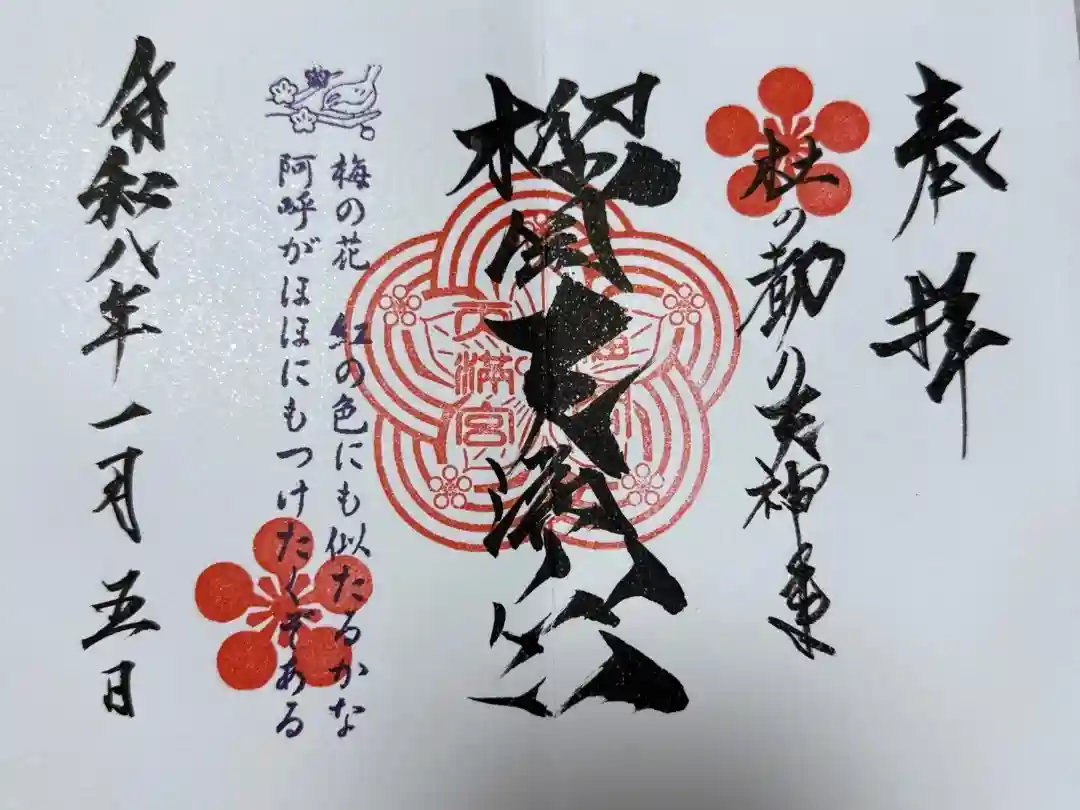 奉拝
杜の都の天神
榴岡天満宮
天満宮
梅の花 紅の色にも似たるかな
阿呼がほほにもつけたくぞある
令和八年 一月 五日